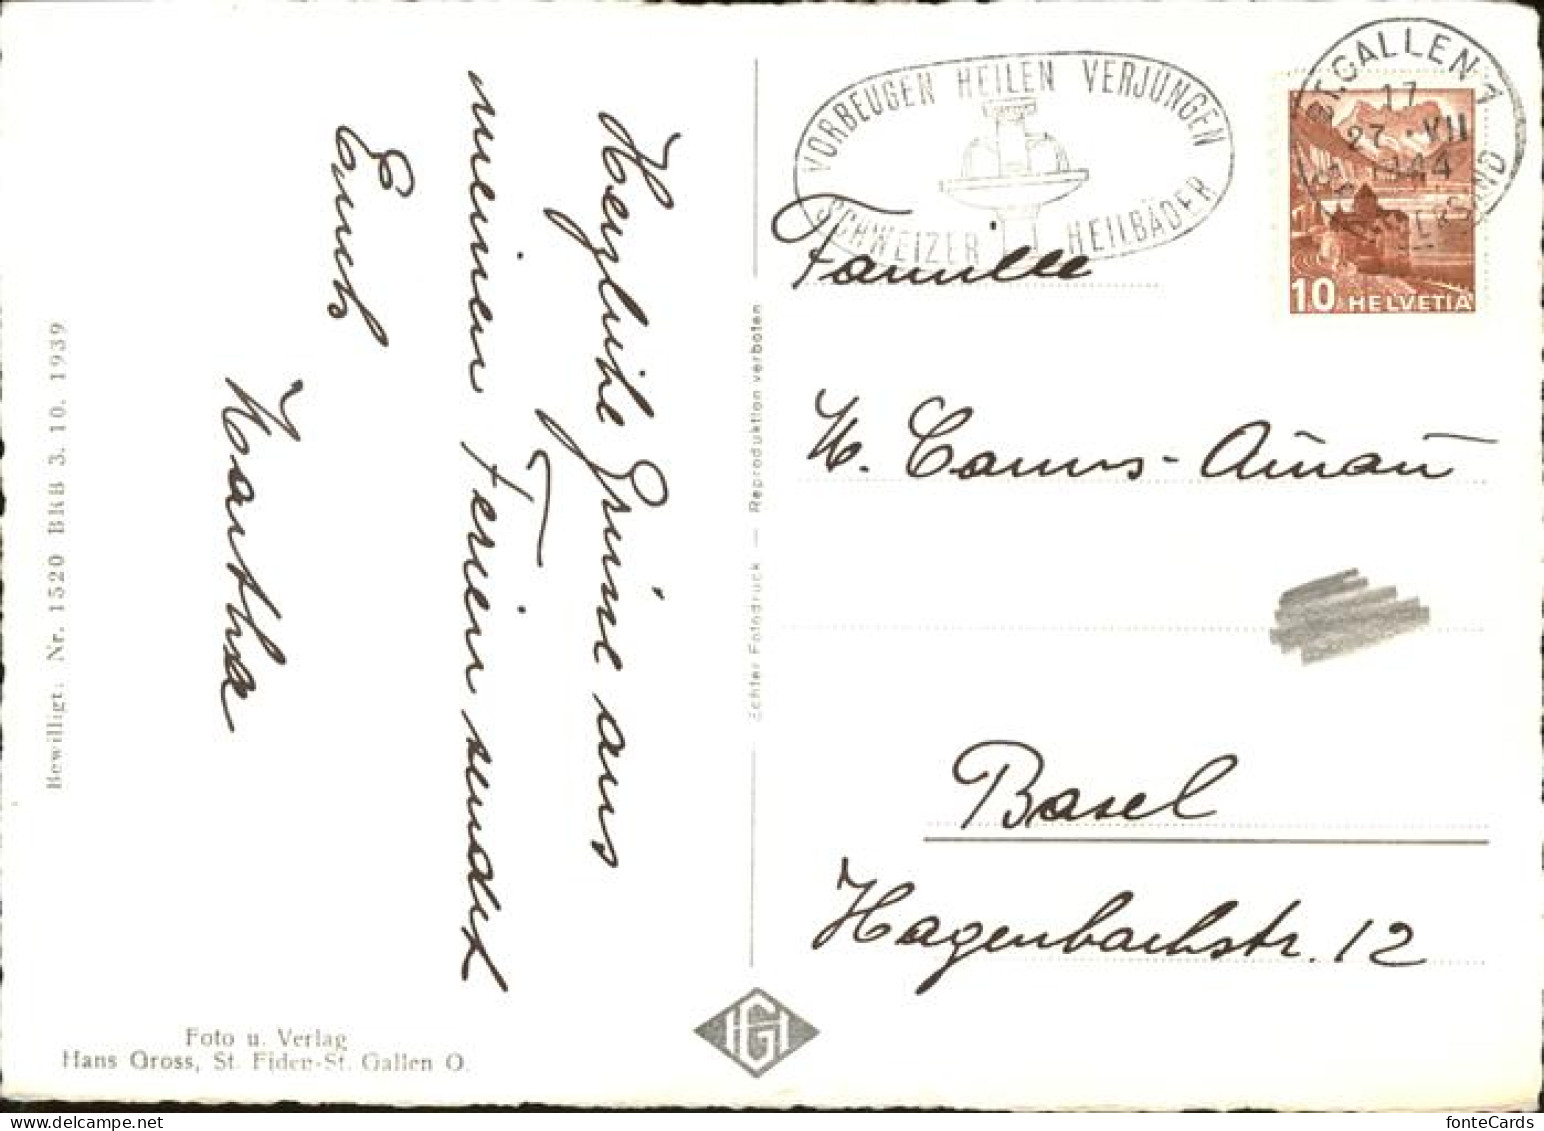 Herzliche Grüsse aus
meinen Ferien sendet
Euch
Martha
Bewilligt: Nr. 1520 BRB 3. 10. 1939
Foto u. Verlag
Hans Gross, St. Fiden-St. Gallen O.
Echter Fotodruck — Reproduktion verboten
HG
VORBEUGEN HEILEN VERJÜNGEN
SCHWEIZER HEILBÄDER
ST. GALLEN 1
17
27 · VII
1944
10 HELVETIA
Familie
Basel
Hagenbachstr. 12
fonteCards